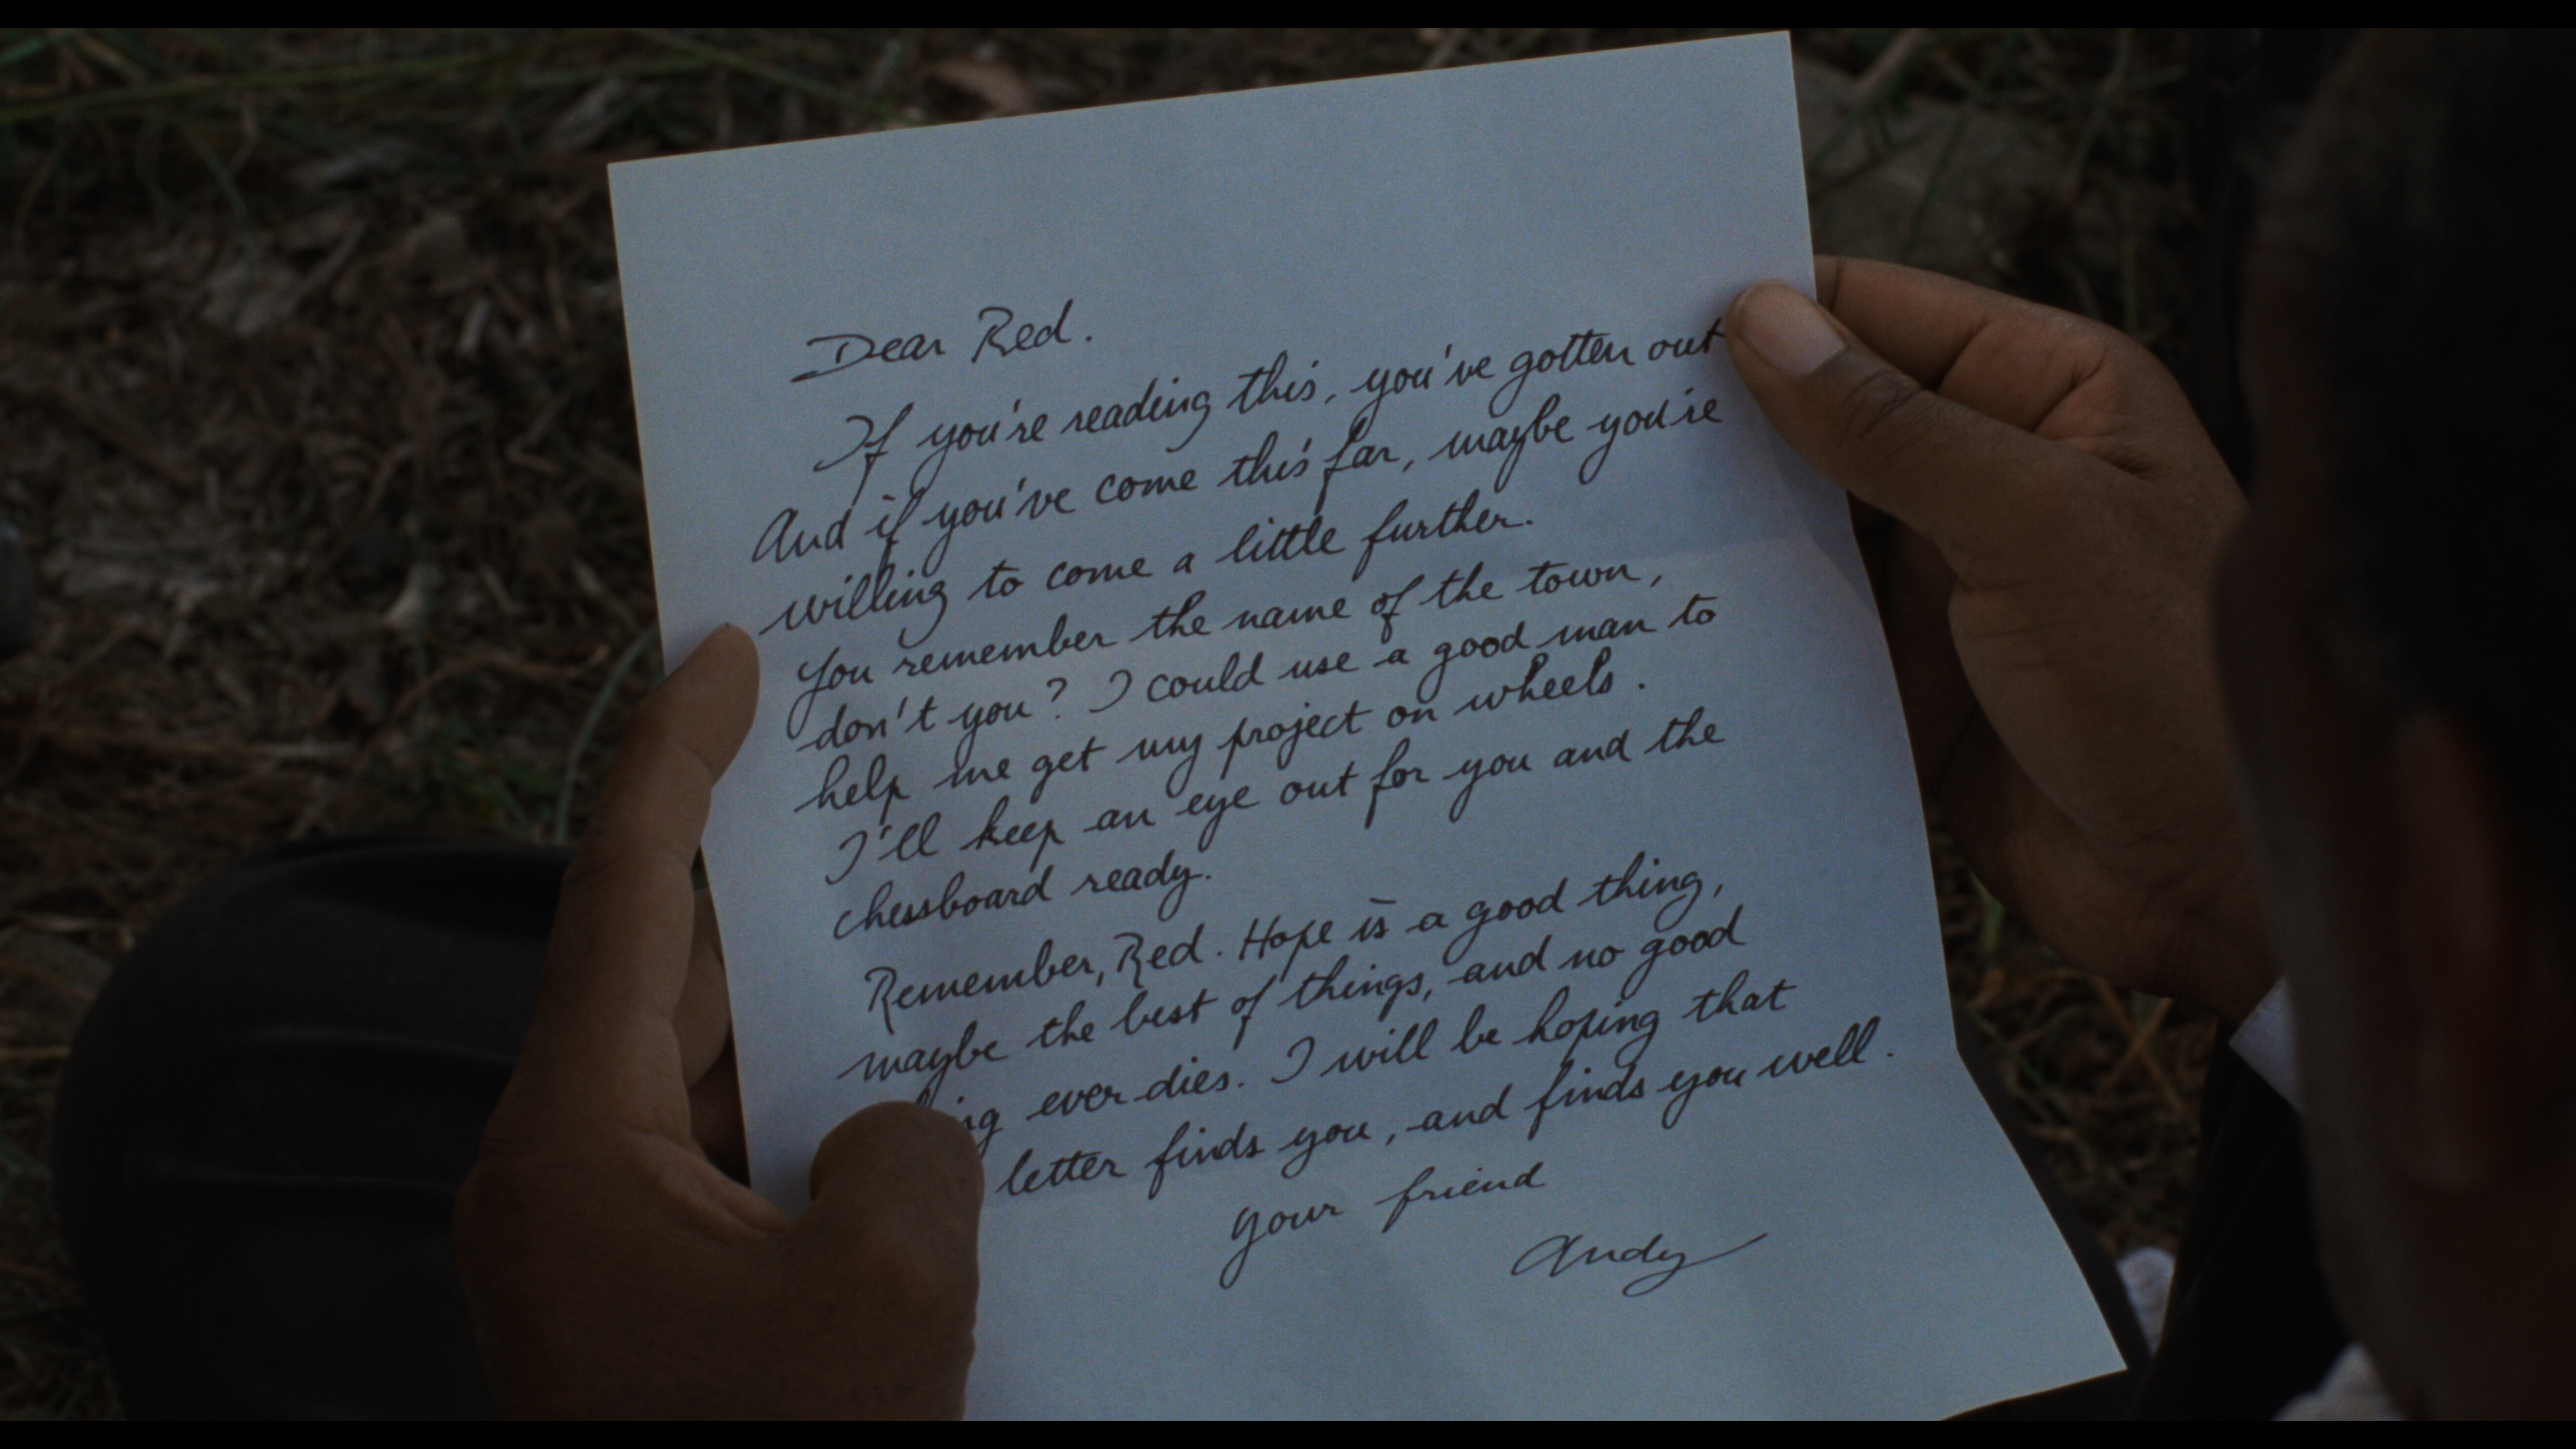 Dear Red.
If you're reading this, you've gotten out
And if you've come this far, maybe you're
willing to come a little further.
You remember the name of the town,
don't you? I could use a good man to
help me get my project on wheels.
I'll keep an eye out for you and the
chessboard ready.
Remember, Red. Hope is a good thing,
maybe the best of things, and no good
ever dies. I will be hoping that
letter finds you, and finds you well.
your friend
Andy